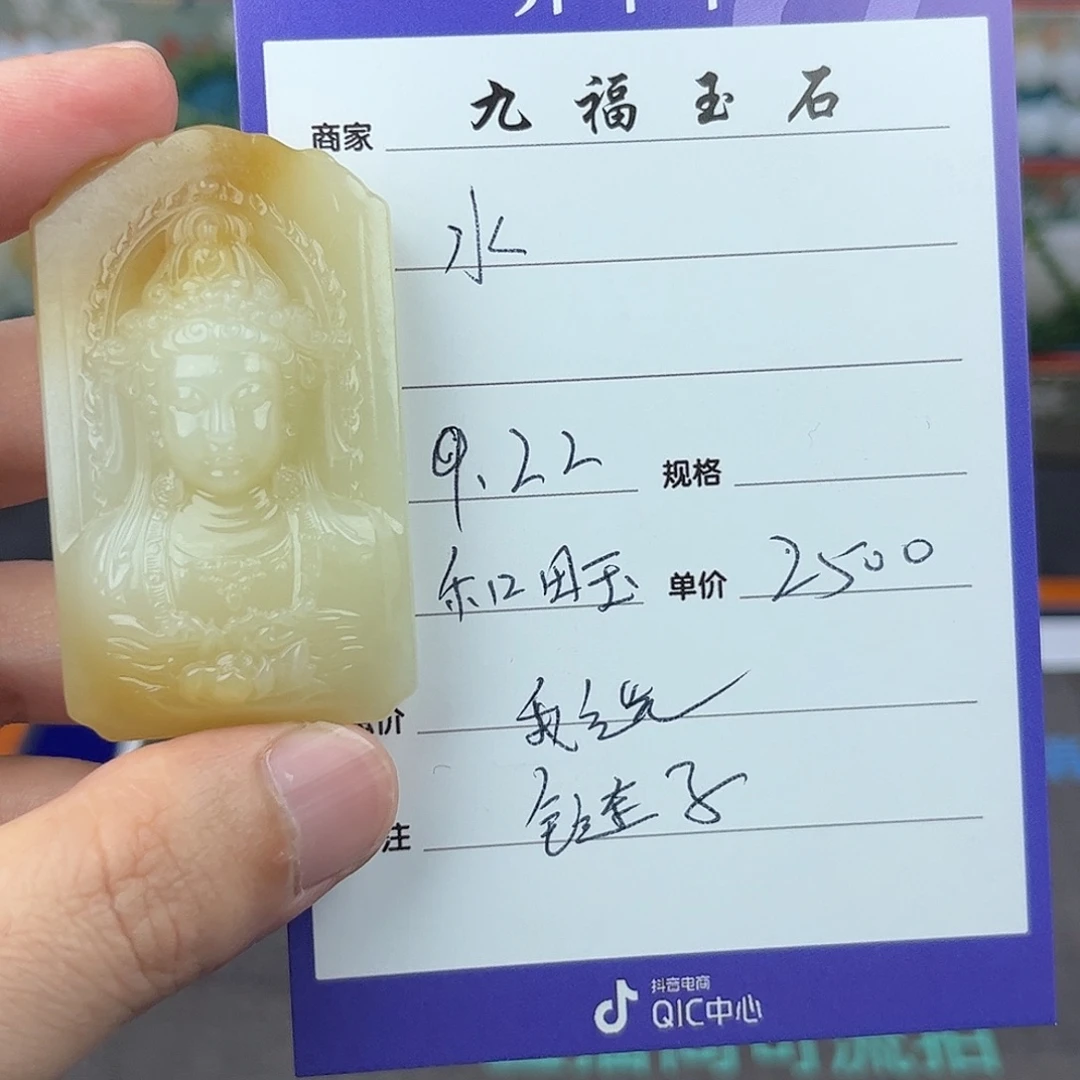 商家 九福玉石
水
9.22 规格
和田玉 单价 2500
价
注
抖音电商
QIC中心